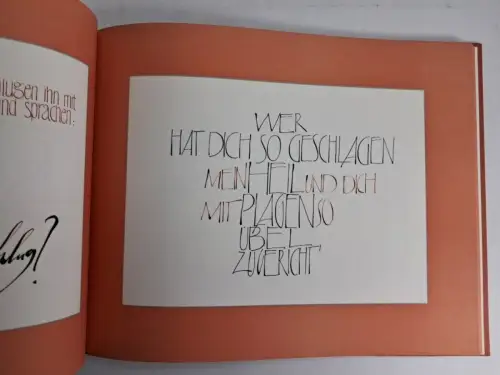 lugen ihn mit
nd sprachen:
hlug?
WER
HAT DICH SO GESCHLAGEN
MEIN HEIL UND DICH
MIT PLAGEN SO
ÜBEL
ZUGERICHT'